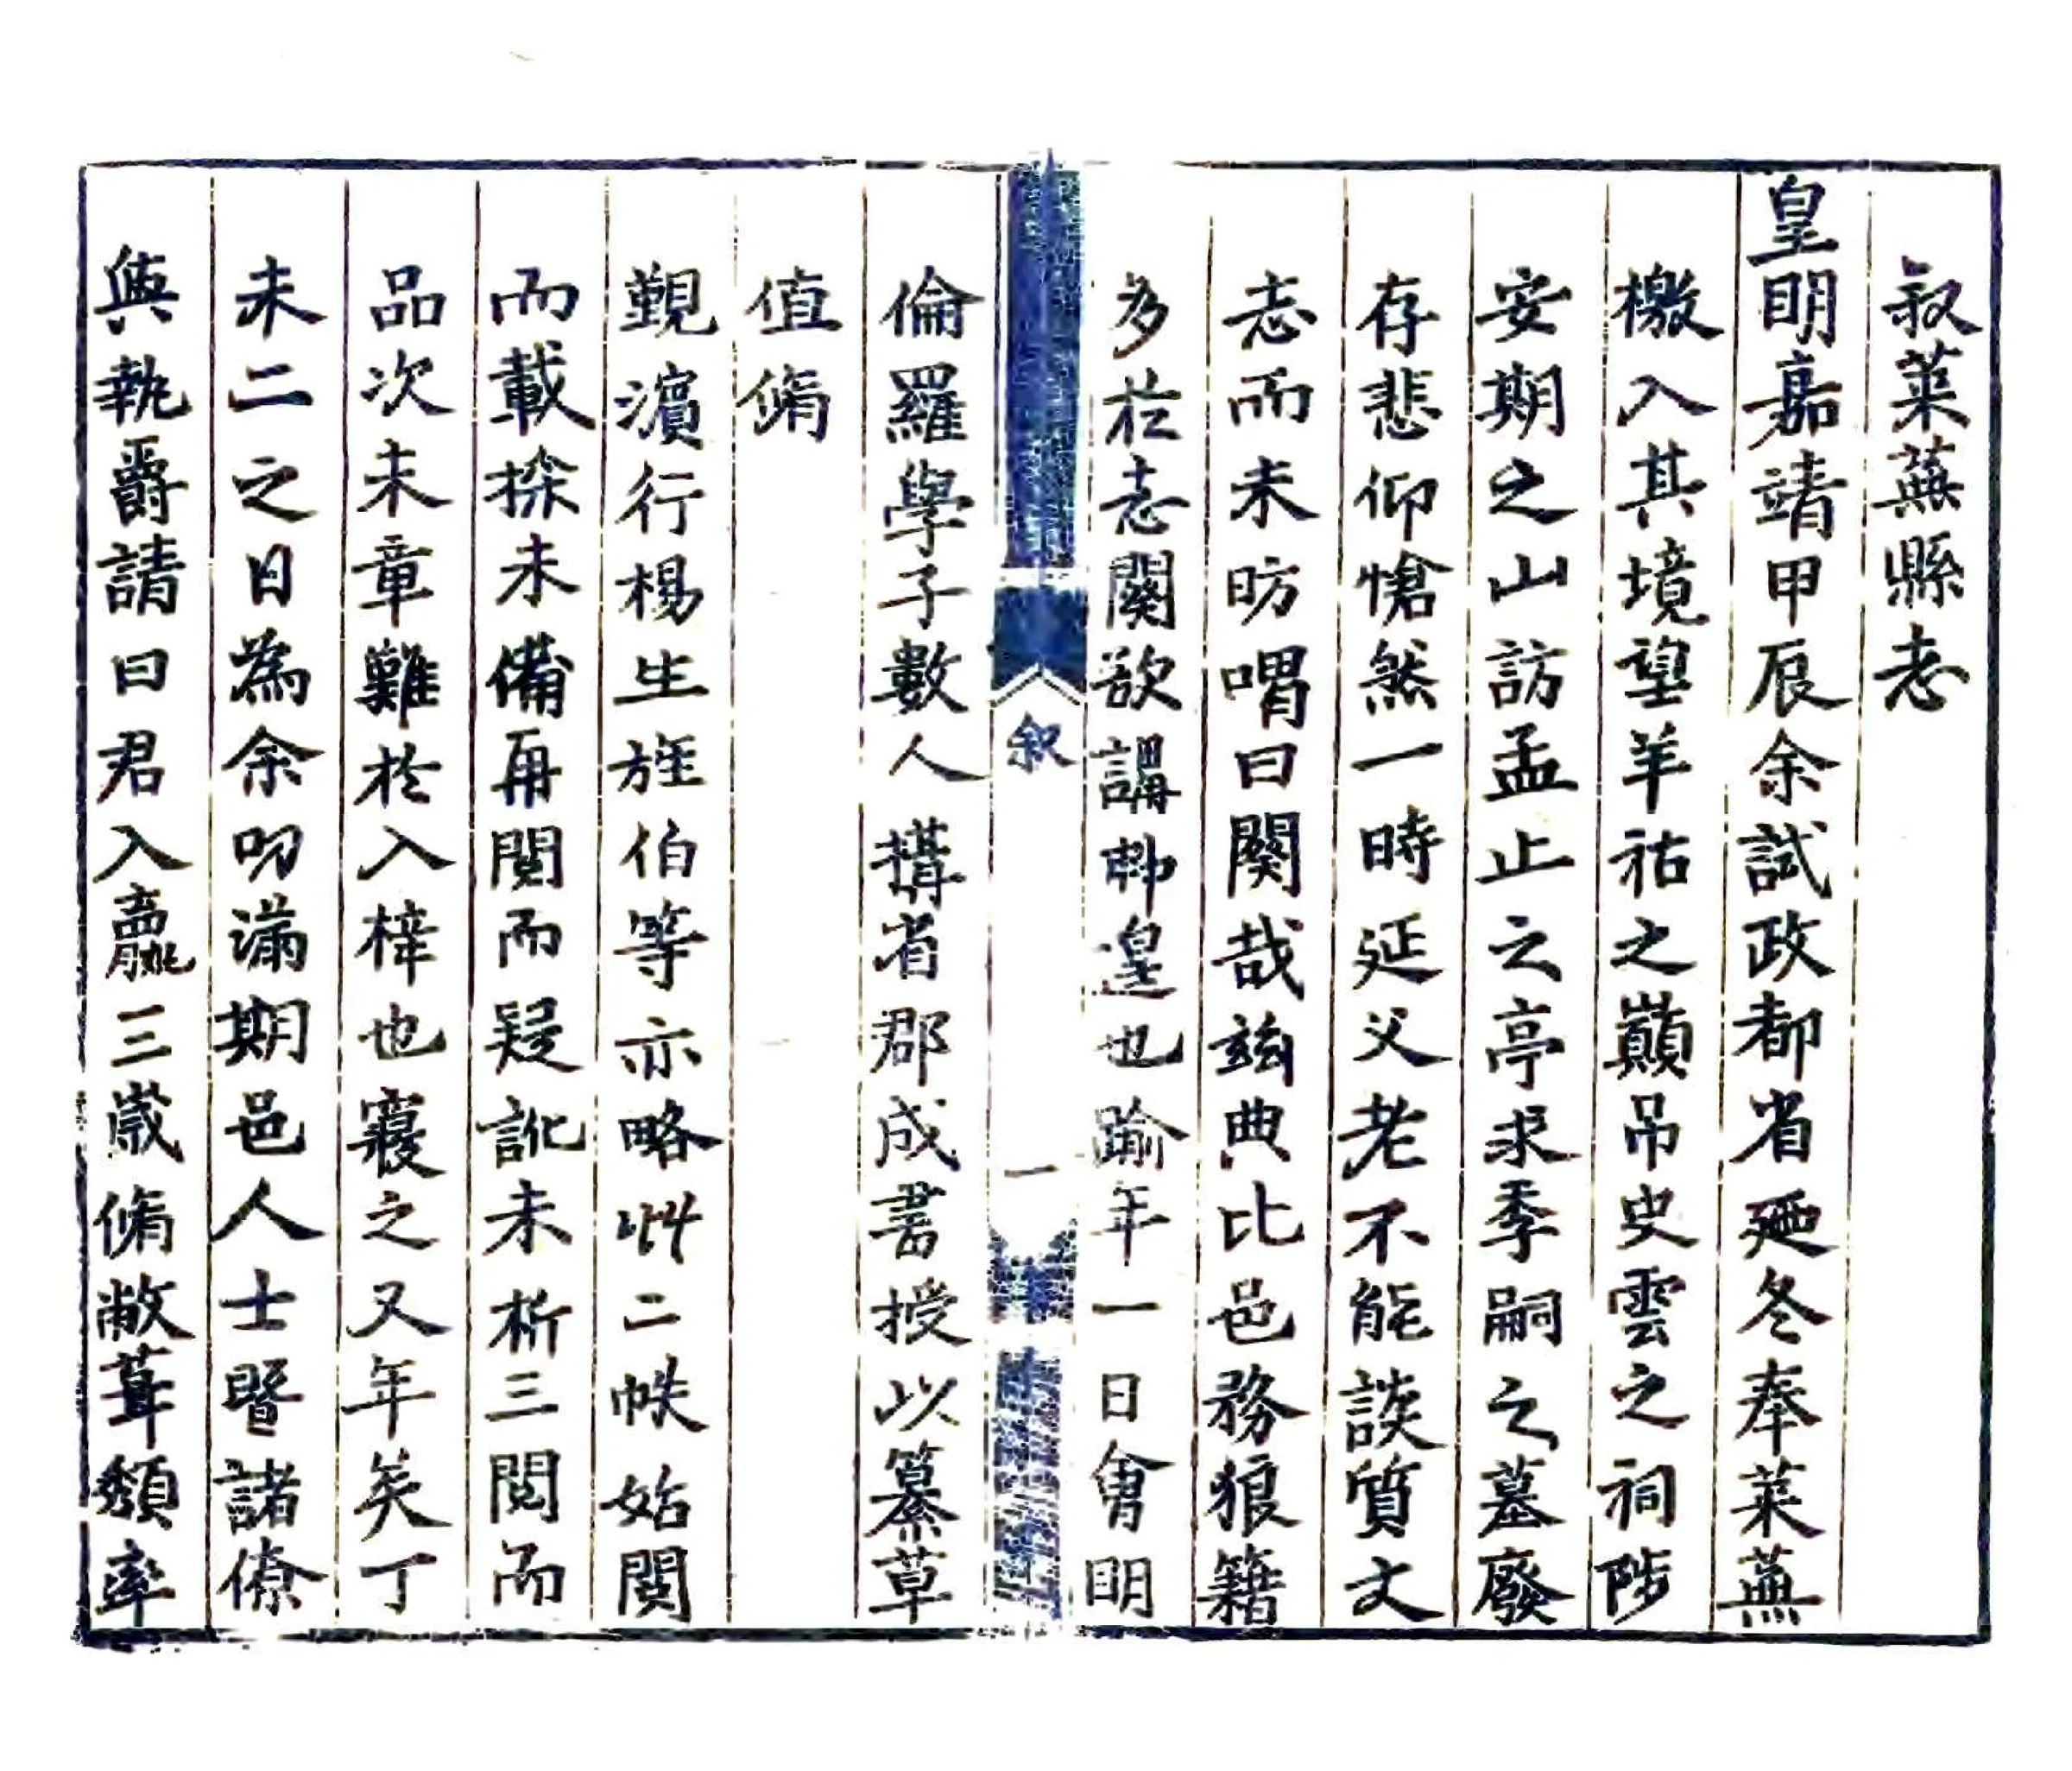 叙萊蕪縣志
皇明嘉靖甲辰余試政都省廼冬奉萊蕪
檄入其境望羊祜之巔吊史雲之祠陟
安期之山訪孟止之亭求季嗣之墓廢
存悲仰愴然一時延父老不能談質文
志而未昉喟曰闕哉玆典比邑務狼籍
多於志闕欲講邮遑也踰年一日會明
倫羅學子數人搆省郡成書授以纂草
值脩
覲濵行楊生旌伯等亦略丱二帙始閱
而載採未備再閱而疑訛未析三閱而
品次未章難於入梓也寢之又年矣丁
未二之日為余叨滿期邑人士暨諸僚
與執爵請曰君入嬴三歲脩敝葺頽率
叙
一